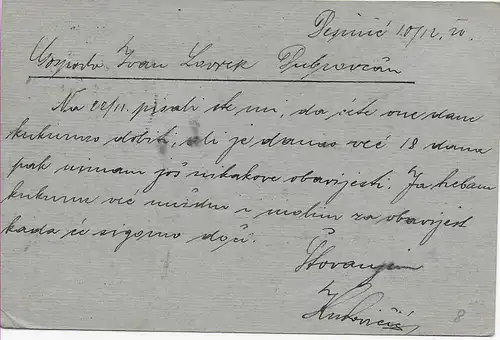 10/12. 20.
Gospodin Ivan Lavrek Dubravčan
Na 22/11. pisali ste mi, da ćete ove dane
kukuruz dobiti, ali je danas već 18 dana
pak nimam još nikakove obavijesti. Ja trebam
kukuruz već nuždno i molim za obavijest
kada će sigurno doći.
Štovanjem
8